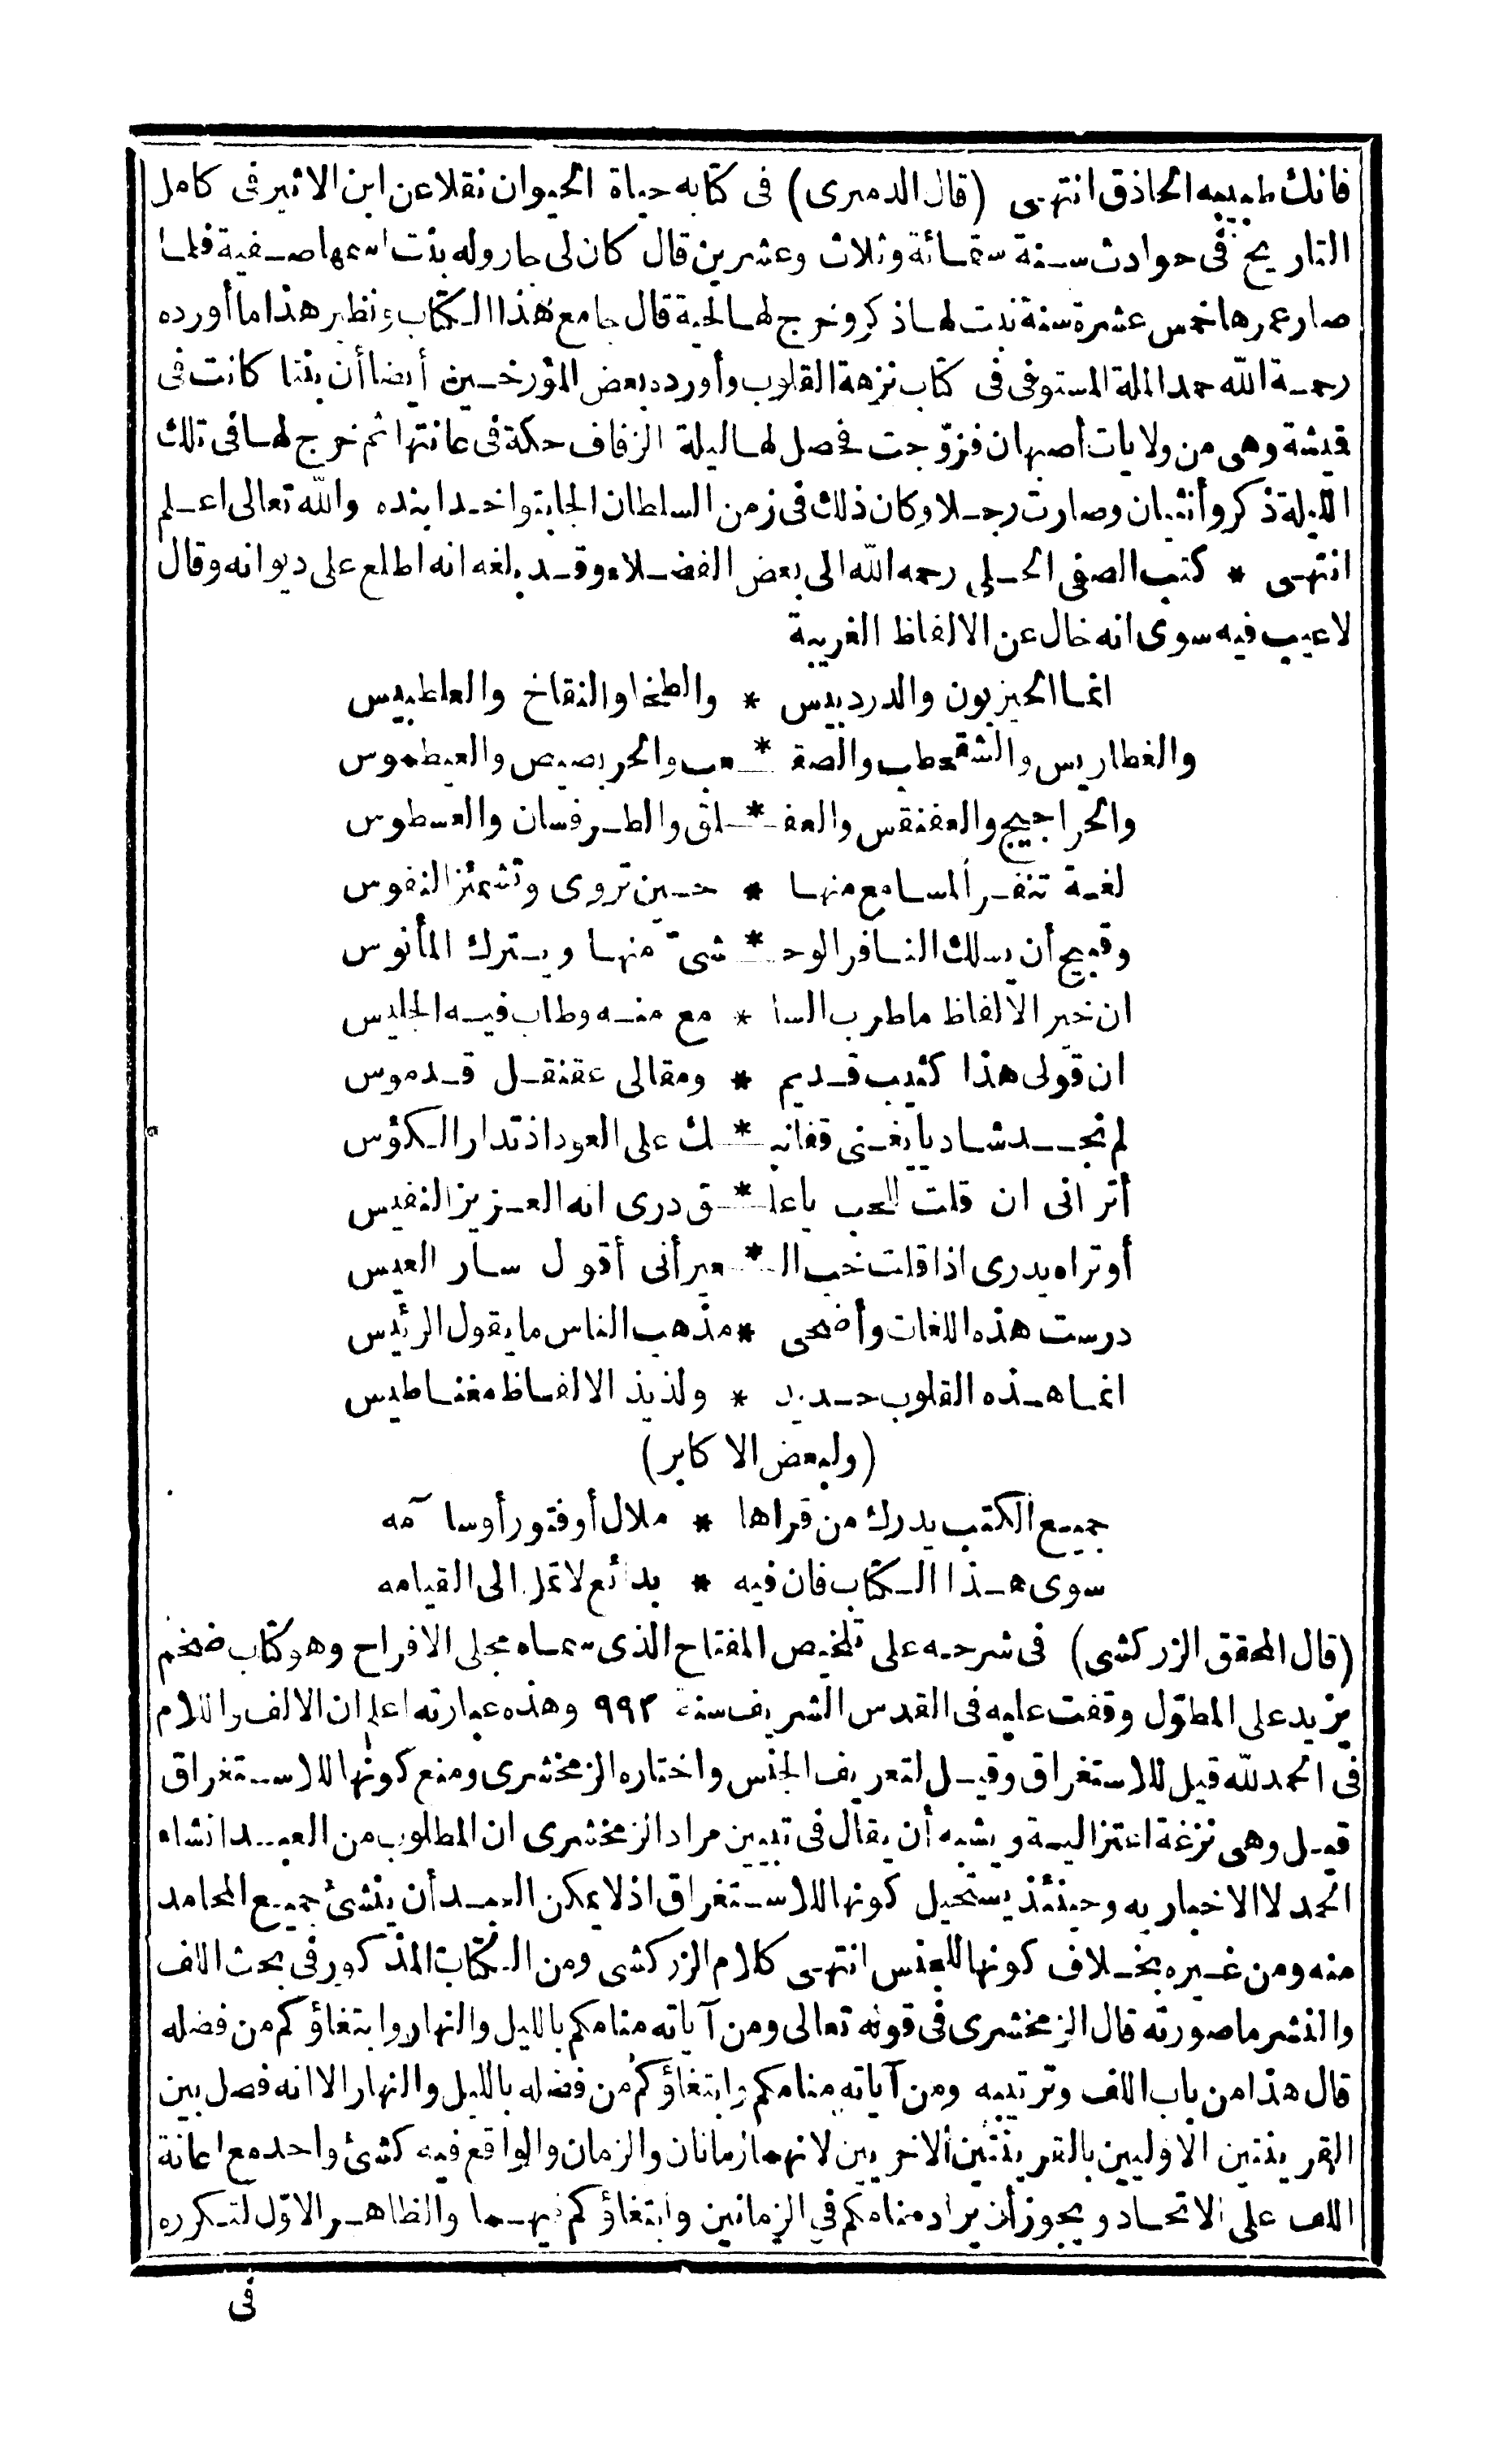 فانك طبيبه الحاذق انتهى (قال الدميرى) فى كتابه حياة الحيوان نقلا عن ابن الاثير فى كامل
التاريخ فى حوادث سنة ستمائة وثلاث وعشرين قال كان لى جار وله بنت اسمها صفية فلما
صار عمرها خمس عشرة سنة نبت لها ذكر وخرج لها لحية قال جامع هذا الكتاب ونظير هذا ما أورده
رحمة الله حمد الملة المستوفى فى كتاب نزهة القلوب وأورده بعض المؤرخين أيضا أن بنتا كانت فى
قمشة وهى من ولايات أصبهان فزوّجت فحصل لها ليلة الزفاف حكة فى عانتها ثم خرج لها فى تلك
الليلة ذكر وأنثيان وصارت رجلا وكان ذلك فى زمن السلطان الجايتو اخدا بنده والله تعالى اعلم
انتهى * كتب الصفى الحلى رحمه الله الى بعض الفضلاء وقد بلغه انه اطلع على ديوانه وقال
لا عيب فيه سوى انه خال عن الالفاظ الغريبة
انما الحيزبون والدردبيس * والطخا والنقاخ والعلطبيس
والغطاريس والشقحطب والصقـ * ـعب والحربصيص والعيطموس
والحراجيج والعفنقس والعفـ * ـلق والطرفسان والعسطوس
لغة تنفر المسامع منها * حين تروى وتشمئز النفوس
وقبيح أن يسلك النافر الوحـ * ـشىّ منها ويترك المأنوس
ان خير الالفاظ ما طرب السا * مع منه وطاب فيه الجليس
ان قولى هذا كثيب قديم * ومقالى عقنقل قدموس
لم تجد شاديا يغنى قفانبـ * ـك على العود اذ تدار الكؤس
أترانى ان قلت للحب يا علـ * ـق درى انه العزيز النفيس
أو تراه يدرى اذا قلت خب الـ * ـعير أنى أقول سار العيس
درست هذه اللغات وأضحى * مذهب الناس ما يقول الرئيس
انما هذه القلوب حديد * ولذيذ الالفاظ مغناطيس
(ولبعض الاكابر)
جميع الكتب يدرك من قراها * ملال أو فتور أو سآمه
سوى هذا الكتاب فان فيه * بدائع لا تمل الى القيامه
(قال المحقق الزركشى) فى شرحه على تلخيص المفتاح الذى سماه مجلى الافراح وهو كتاب ضخم
يزيد على المطوّل وقفت عليه فى القدس الشريف سنة ٩٩٢ وهذه عبارته اعلم ان الالف واللام
فى الحمد لله قيل للاستغراق وقيل لتعريف الجنس واختاره الزمخشرى ومنع كونها للاستغراق
قيل وهى نزغة اعتزالية ويشبه أن يقال فى تبيين مراد الزمخشرى ان المطلوب من العبد انشاء
الحمد لا الاخبار به وحينئذ يستحيل كونها للاستغراق اذ لا يمكن العبد أن ينشئ جميع المحامد
منه ومن غيره بخلاف كونها للجنس انتهى كلام الزركشى ومن الكتاب المذكور فى بحث اللف
والنشر ما صورته قال الزمخشرى فى قوله تعالى ومن آياته منامكم بالليل والنهار وابتغاؤكم من فضله
قال هذا من باب اللف وترتيبه ومن آياته منامكم وابتغاؤكم من فضله بالليل والنهار الا انه فصل بين
القرينتين الاوليين بالقرينتين الاخريين لانهما زمانان والزمان والواقع فيه كشئ واحد مع اعانة
اللف على الاتحاد ويجوز أن يراد منامكم فى الزمانين وابتغاؤكم فيهما والظاهر الاوّل لتكرره
فى